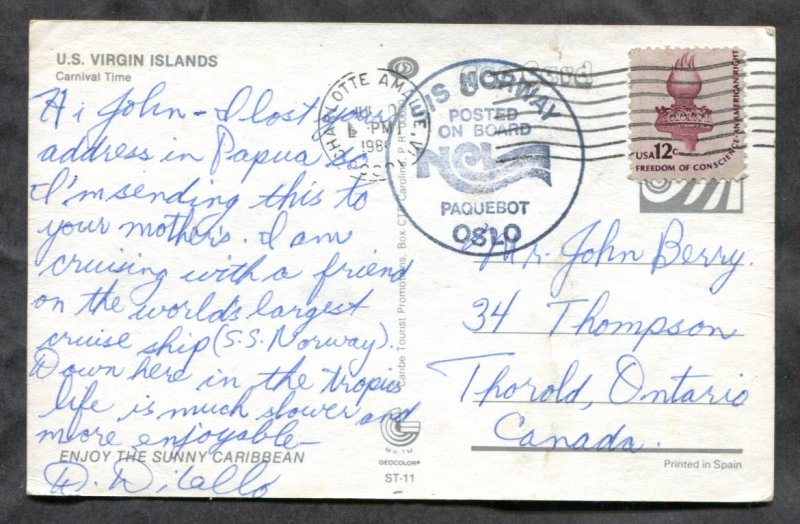 U.S. VIRGIN ISLANDS
Carnival Time
Hi John - I lost your
address in Papua so
I'm sending this to
your mother's. I am
cruising with a friend
on the world's largest
cruise ship (S.S. Norway).
Down here in the tropics
life is much slower and
more enjoyable -
ENJOY THE SUNNY CARIBBEAN
D. DiLallo
Caribe Tourist Promotions, Box Carolina, P.R.
GEOCOLOR®
ST-11
CHARLOTTE AMALIE, V.I.
PM
M/S NORWAY
POSTED
ON BOARD
NCL
PAQUEBOT
OSLO
USA 12c
FREEDOM OF CONSCIENCE-AN AMERICAN RIGHT
Mr. John Berry.
34 Thompson
Thorold, Ontario
Canada.
Printed in Spain